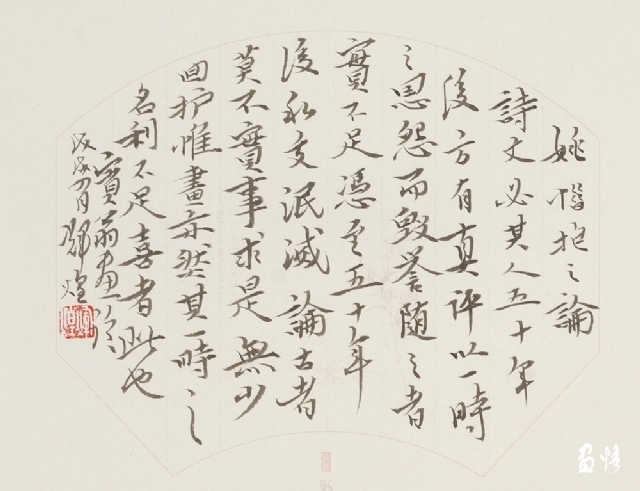 姚惜抱之論
詩文必其人五十年
後方有真評以一時
之恩怨而毀譽隨之者
實不足憑至五十年
後私交泯滅論古者
莫不實事求是無少
回护惟畫亦然其一時之
名利不足喜者此也
賓翁畫語
戊戌
書情